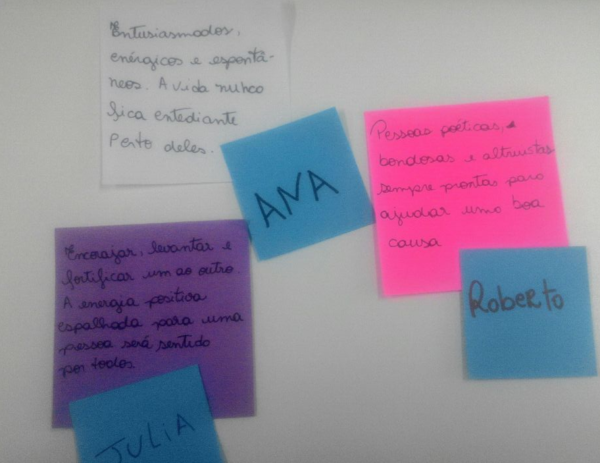 Entusiasmados,
enérgicos e espontâ-
neos. A vida nunca
fica entediante
Perto deles.
ANA
Pessoas poéticas,
bondosas e altruístas
sempre prontas para
ajudar uma boa
causa
Roberto
Encorajar, levantar e
fortificar um ao outro.
A energia positiva
espalhada para uma
pessoa será sentido
por todos.
JULIA